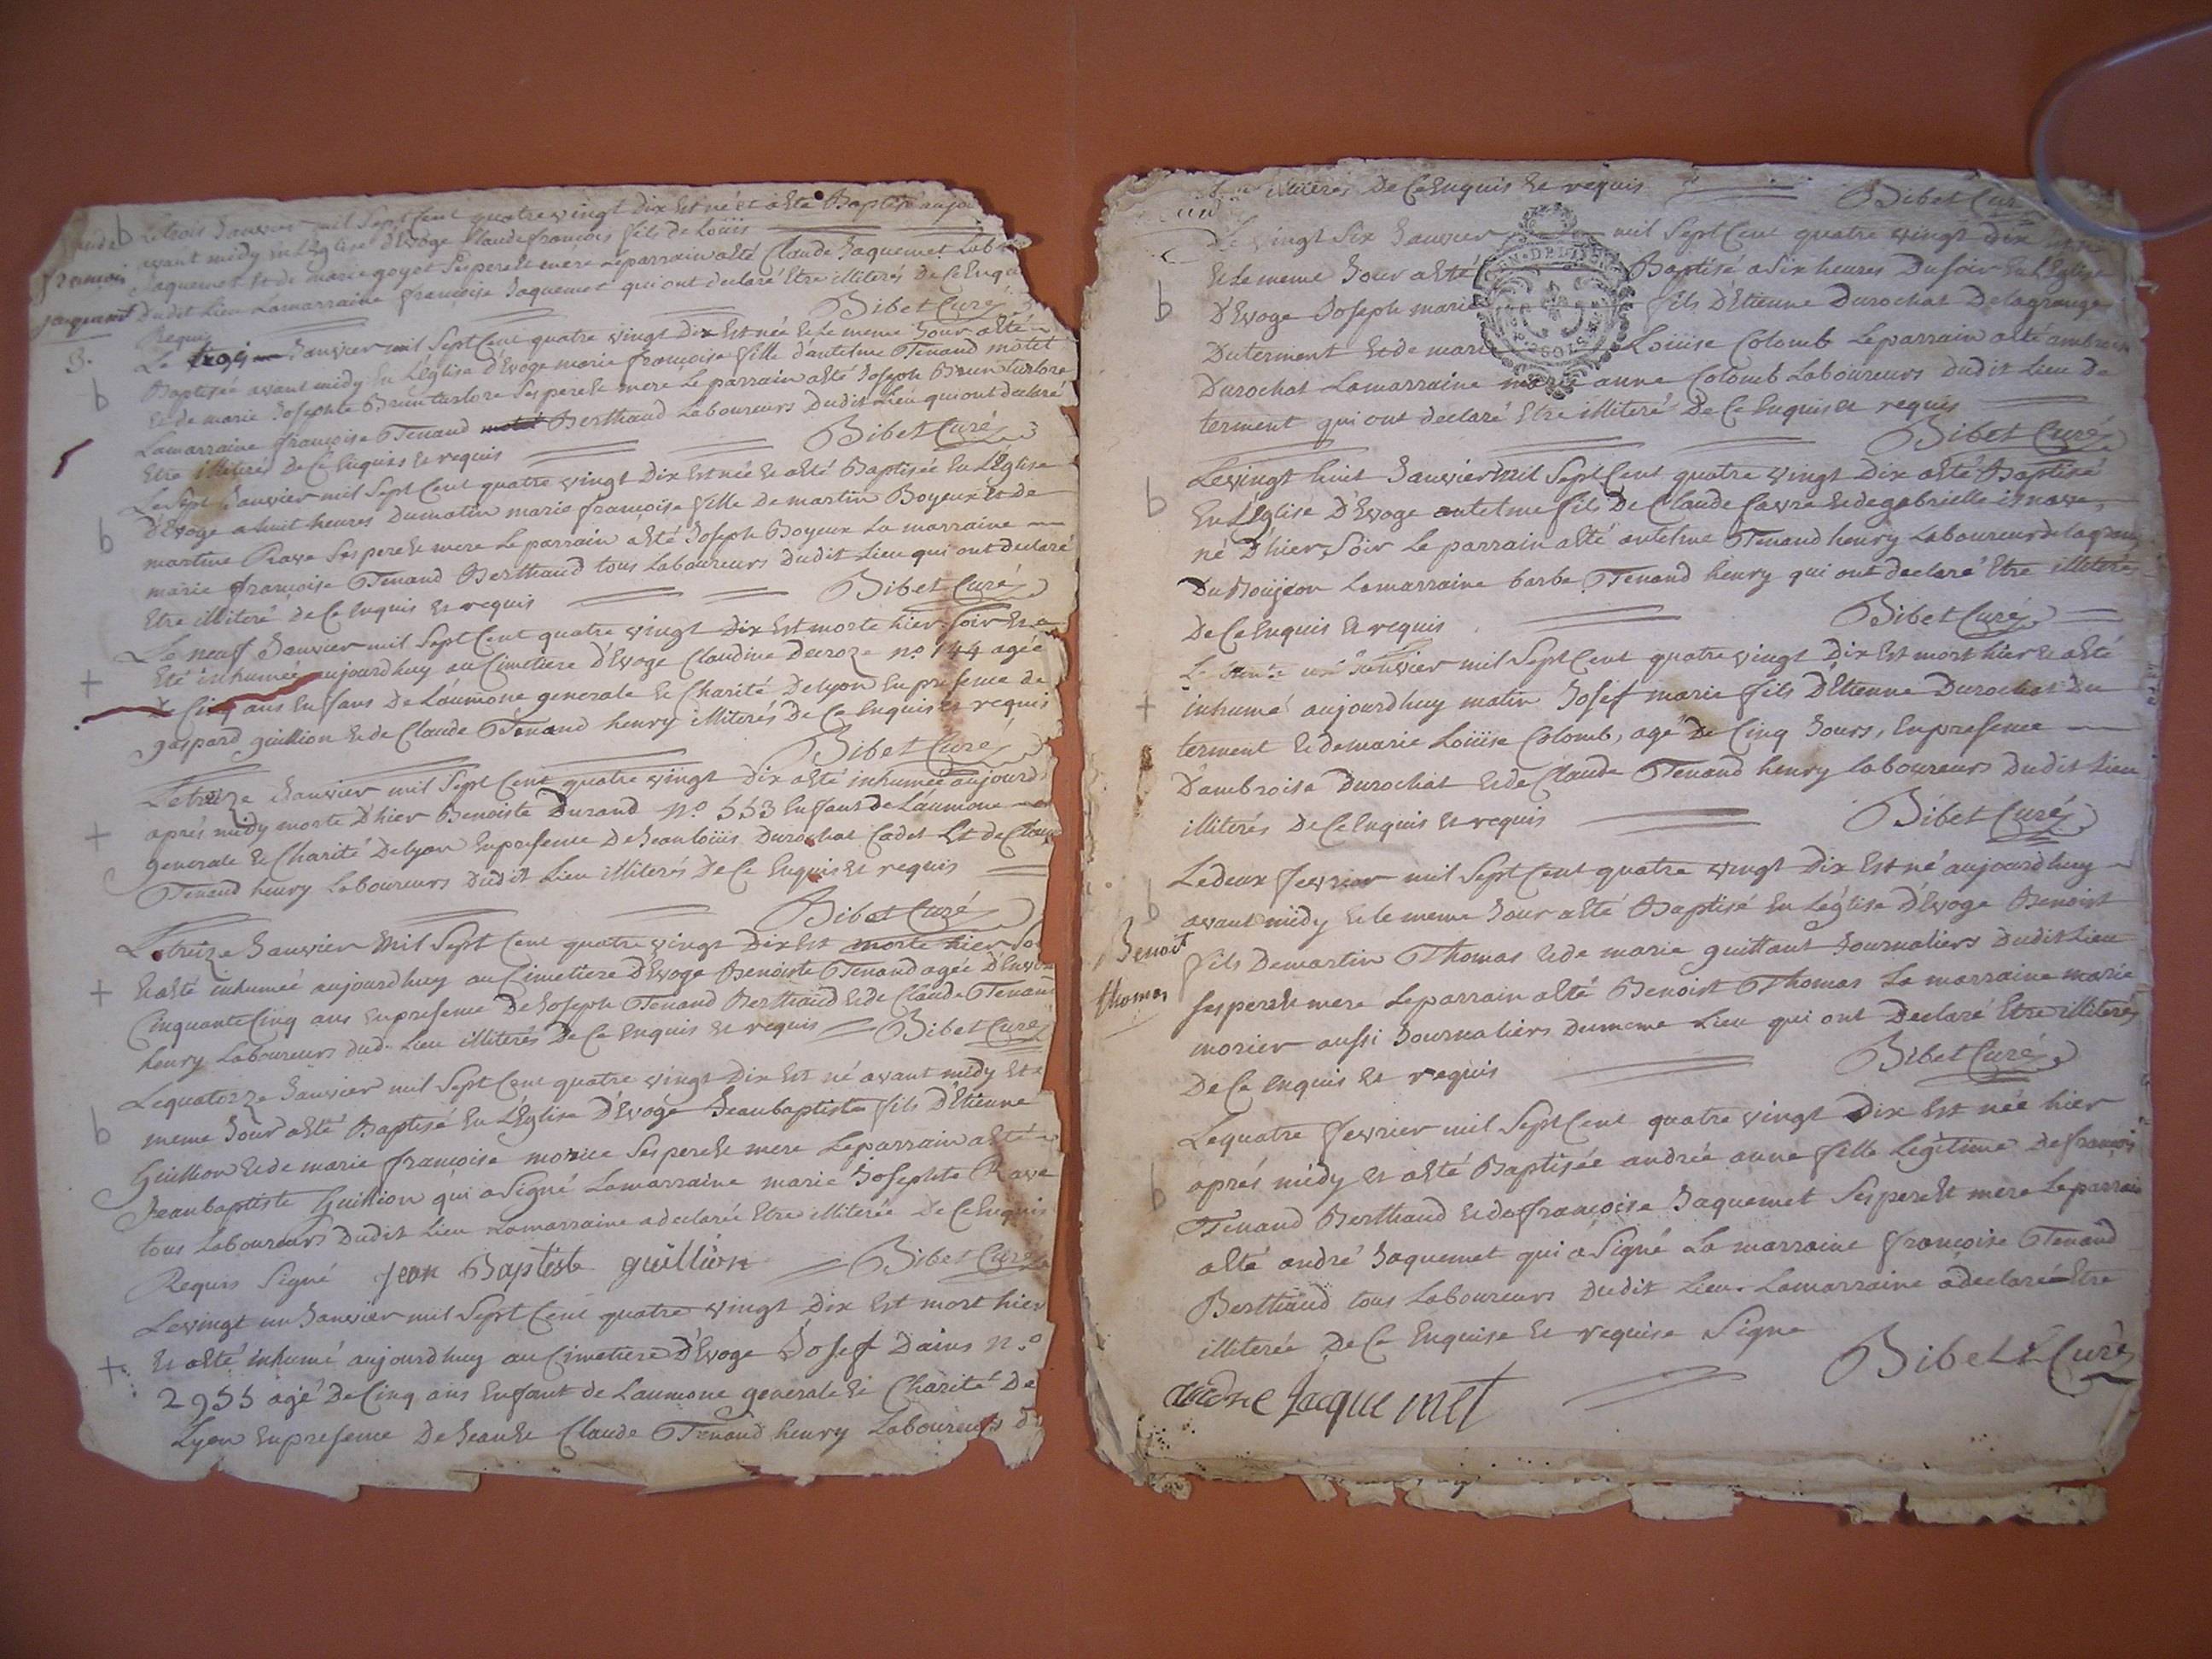 Le trois Janvier mil Sept Cent quatre vingt Dix Est né et a Eté Baptisé aujo
avant midy En L'Eglise d'Evoge Claude françois fils de Loüis
Jaquemet Et de marie goyet Ses pere Et mere Le parrain a Eté Claude Jaquemet Lab
Dudit Lieu La marraine françoise Jaquemet qui ont declaré Etre illiterés De Ce Enqui
Requis Bibet Curé
françois
Jaquemet
3.
b
Le Janvier mil Sept Cent quatre vingt Dix Est née Et Le meme Jour a Eté
Baptisée avant midy En L'Eglise d'Evoge marie françoise fille d'antelme Tenand motet
Et de marie Josephte Brun turlore Ses pere Et mere Le parrain a Eté Joseph Brun turlore
La marraine françoise Tenand Berthaud Laboureurs Dudit Lieu qui ont declaré
Etre illiterés De Ce Enquis Et requis Bibet Curé
b
Le Sept Janvier mil Sept Cent quatre vingt Dix Est née Et a Eté Baptisée En L'Eglise
d'Evoge a huit heures Du matin marie françoise fille De martin Boyeux Et de
martine Rave Ses pere Et mere Le parrain a Eté Joseph Boyeux La marraine
marie françoise Tenand Berthaud tous Laboureurs Dudit Lieu qui ont declaré
Etre illiteré de Ce Enquis Et requis Bibet Curé
b
Le neuf Janvier mil Sept Cent quatre vingt Dix Est morte hier Soir Et a
Eté inhumée aujourdhuy au Cimetiere d'Evoge Claudine Deroze no. 144 agée
De Cinq ans Enfans De L'aumône generale Et Charité De Lyon En presence de
gaspard guillion Et de Claude Tenand henry illiterés De Ce Enquis Et requis
Bibet Curé
+
Le treize Janvier mil Sept Cent quatre vingt Dix a Eté inhumée aujourd
aprés midy morte D'hier Benoiste Durand No. 553 Enfant de L'aumone
generale Et Charité De Lyon En presence De Jean Loüis Durochat Cadet Et de Clau
Tenand henry Laboureurs Dudit Lieu illiterés De Ce Enquis Et requis
Bibet Curé
+
Le treize Janvier Mil Sept Cent quatre vingt Dix Est morte hier So
Et a Eté inhumée aujourdhuy au Cimetiere D'Evoge Benoiste Tenand agée D'Env
Cinquante Cinq ans En presence De Joseph Tenand Berthaud Et de Claude Tenand
henry Laboureurs dud. Lieu illiterés De Ce Enquis Et requis Bibet Curé
+
Le quatorze Janvier mil Sept Cent quatre vingt Dix Est né avant midy Et
meme Jour a Eté Baptisé En L'Eglise D'Evoge Jean baptiste fils D'Etienne
Guillion Et de marie françoise morice Ses pere Et mere Le parrain a Eté
Jean baptiste Guillion qui a Signé La marraine marie Josephte Rave
tous Laboureurs Dudit Lieu La marraine a declarée Etre illiterée De Ce Enquis
Requis Signé Jean Baptiste guillion Bibet Curé
b
Le vingt un Janvier mil Sept Cent quatre vingt Dix Est mort hier
Et a Eté inhumé aujourdhuy au Cimetiere D'Evoge Josef Dains N.o
2955 agé De Cinq ans Enfant de L'aumone generale Et Charité De
Lyon En presence De Jean Et Claude Tenand henry Laboureurs d
+
illiterés De Ce Enquis Et requis Bibet Cur
Le vingt Six Janvier mil Sept Cent quatre vingt Dix
Et Le meme Jour a Eté Baptisé a Six heures Du Soir En L'Eglise
D'Evoge Joseph marie fils D'Etienne Durochat De la grange
Du terment Et de marie Loüise Colomb Le parrain a Eté ambroise
Durochat La marraine marie anne Colomb Laboureurs dudit Lieu De
terment qui ont declaré Etre illiteré De Ce Enquis Et requis
Bibet Curé
b
Le vingt huit Janvier mil Sept Cent quatre vingt Dix a Eté Baptisé
En L'Eglise D'Evoge antelme fils De Claude favre Et de gabrielle
né D'hier Soir Le parrain a Eté antelme Tenand henry Laboureurs de la grange
Du La marraine barbe Tenand henry qui ont declaré Etre illiterés
De Ce Enquis Et requis Bibet Curé
b
Le trente un Janvier mil Sept Cent quatre vingt Dix Est mort hier Et a Eté
inhumé aujourdhuy matin Josef marie fils D'Etienne Durochat Du
terment Et de marie Loüise Colomb, agé De Cinq Jours, En presence
D'ambroise Durochat Et de Claude Tenand henry Laboureurs Dudit Lieu
illiterés De Ce Enquis Et requis Bibet Curé
+
Le deux fevrier mil Sept Cent quatre vingt Dix Est né aujourdhuy
avant midy Et Le meme Jour a Eté Baptisé En L'eglise d'Evoge Benoist
fils De martin Thomas Et de marie guittant Journaliers Dudit Lieu
Ses pere Et mere Le parrain a Eté Benoist Thomas La marraine marie
morier aussi Journaliers Du meme Lieu qui ont Declaré Etre illiterés
De Ce Enquis Et requis Bibet Curé
b
Benoit
thomas
Le quatre fevrier mil Sept Cent quatre vingt Dix Est née hier
aprés midy Et a Eté Baptisée andrée anne fille Legitime De françois
Tenand Berthaud Et de françoise Jaquemet Ses pere Et mere Le parrain
a Eté andré Jaquemet qui a Signé La marraine françoise Tenand
Berthaud tous Laboureurs Dudit Lieu. La marraine a declarée Etre
illiterée De Ce Enquise Et requise Signe
andre Jacquemet Bibet Curé
b